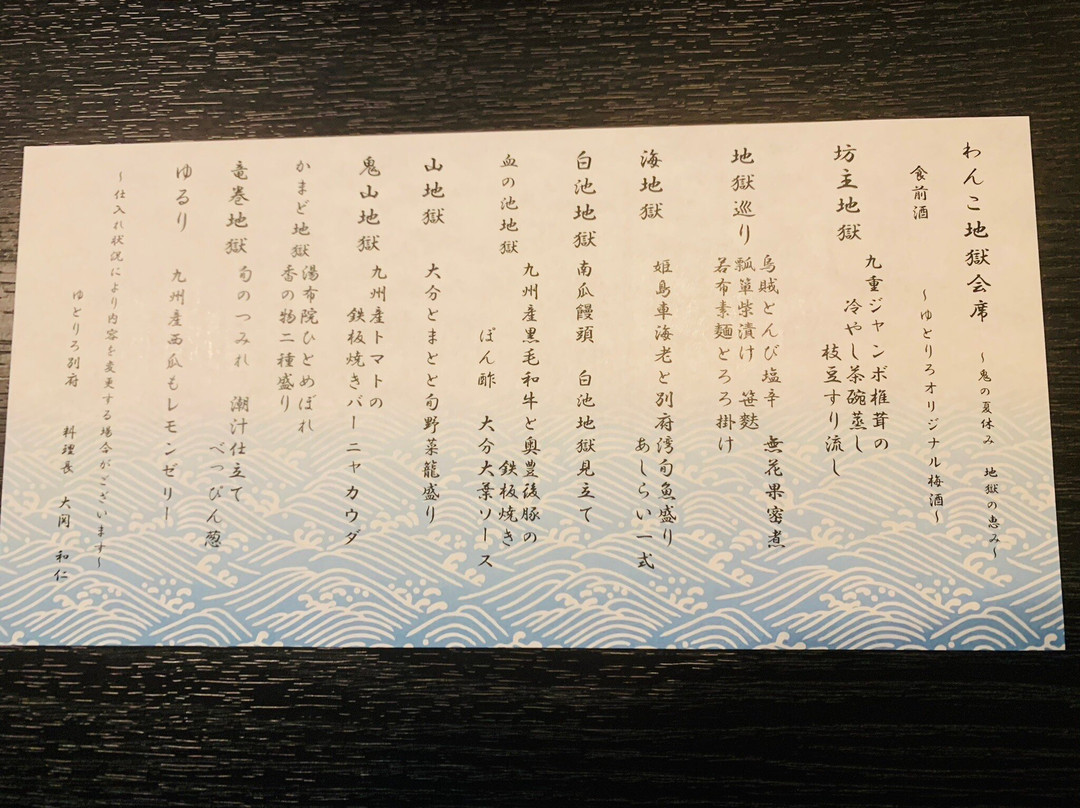 わんこ地獄会席 ～鬼の夏休み 地獄の恵み～
食前酒 ～ゆとりろオリジナル梅酒～
坊主地獄 九重ジャンボ椎茸の
冷やし茶碗蒸し
枝豆すり流し
地獄巡り 烏賊とんび塩辛 無花果蜜煮
瓢箪柴漬け 笹麩
若布素麺とろろ掛け
海地獄 姫島車海老と別府湾旬魚盛り
あしらい一式
白池地獄 南瓜饅頭 白池地獄見立て
血の池地獄 九州産黒毛和牛と奥豊後豚の
鉄板焼き
ぽん酢 大分大葉ソース
山地獄 大分とまとと旬野菜籠盛り
鬼山地獄 九州産トマトの
鉄板焼きバーニャカウダ
かまど地獄 湯布院ひとめぼれ
香の物二種盛り
竜巻地獄 旬のつみれ 潮汁仕立て
べっぴん葱
ゆるり 九州産西瓜もレモンゼリー
～仕入れ状況により内容を変更する場合がございます～
ゆとりろ別府 料理長 大関 和仁